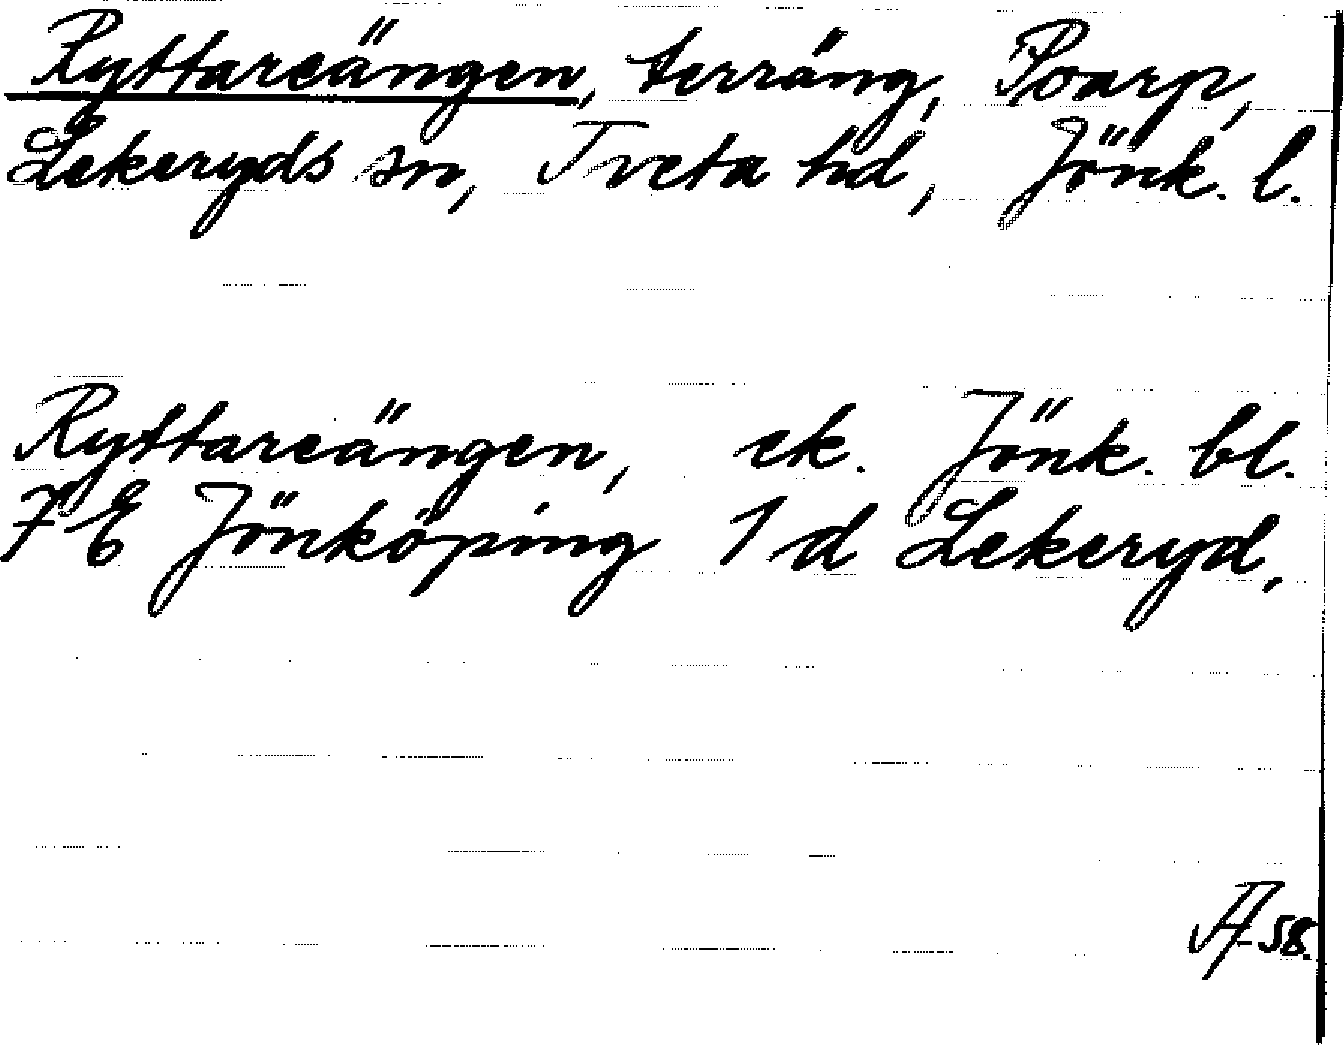 Ryttareängen, terräng, Poarp,
Lekeryds sn, Tveta hd, Jönk. l.
Ryttareängen, ek. Jönk. bl.
7 E Jönköping 1 d Lekeryd,
58.